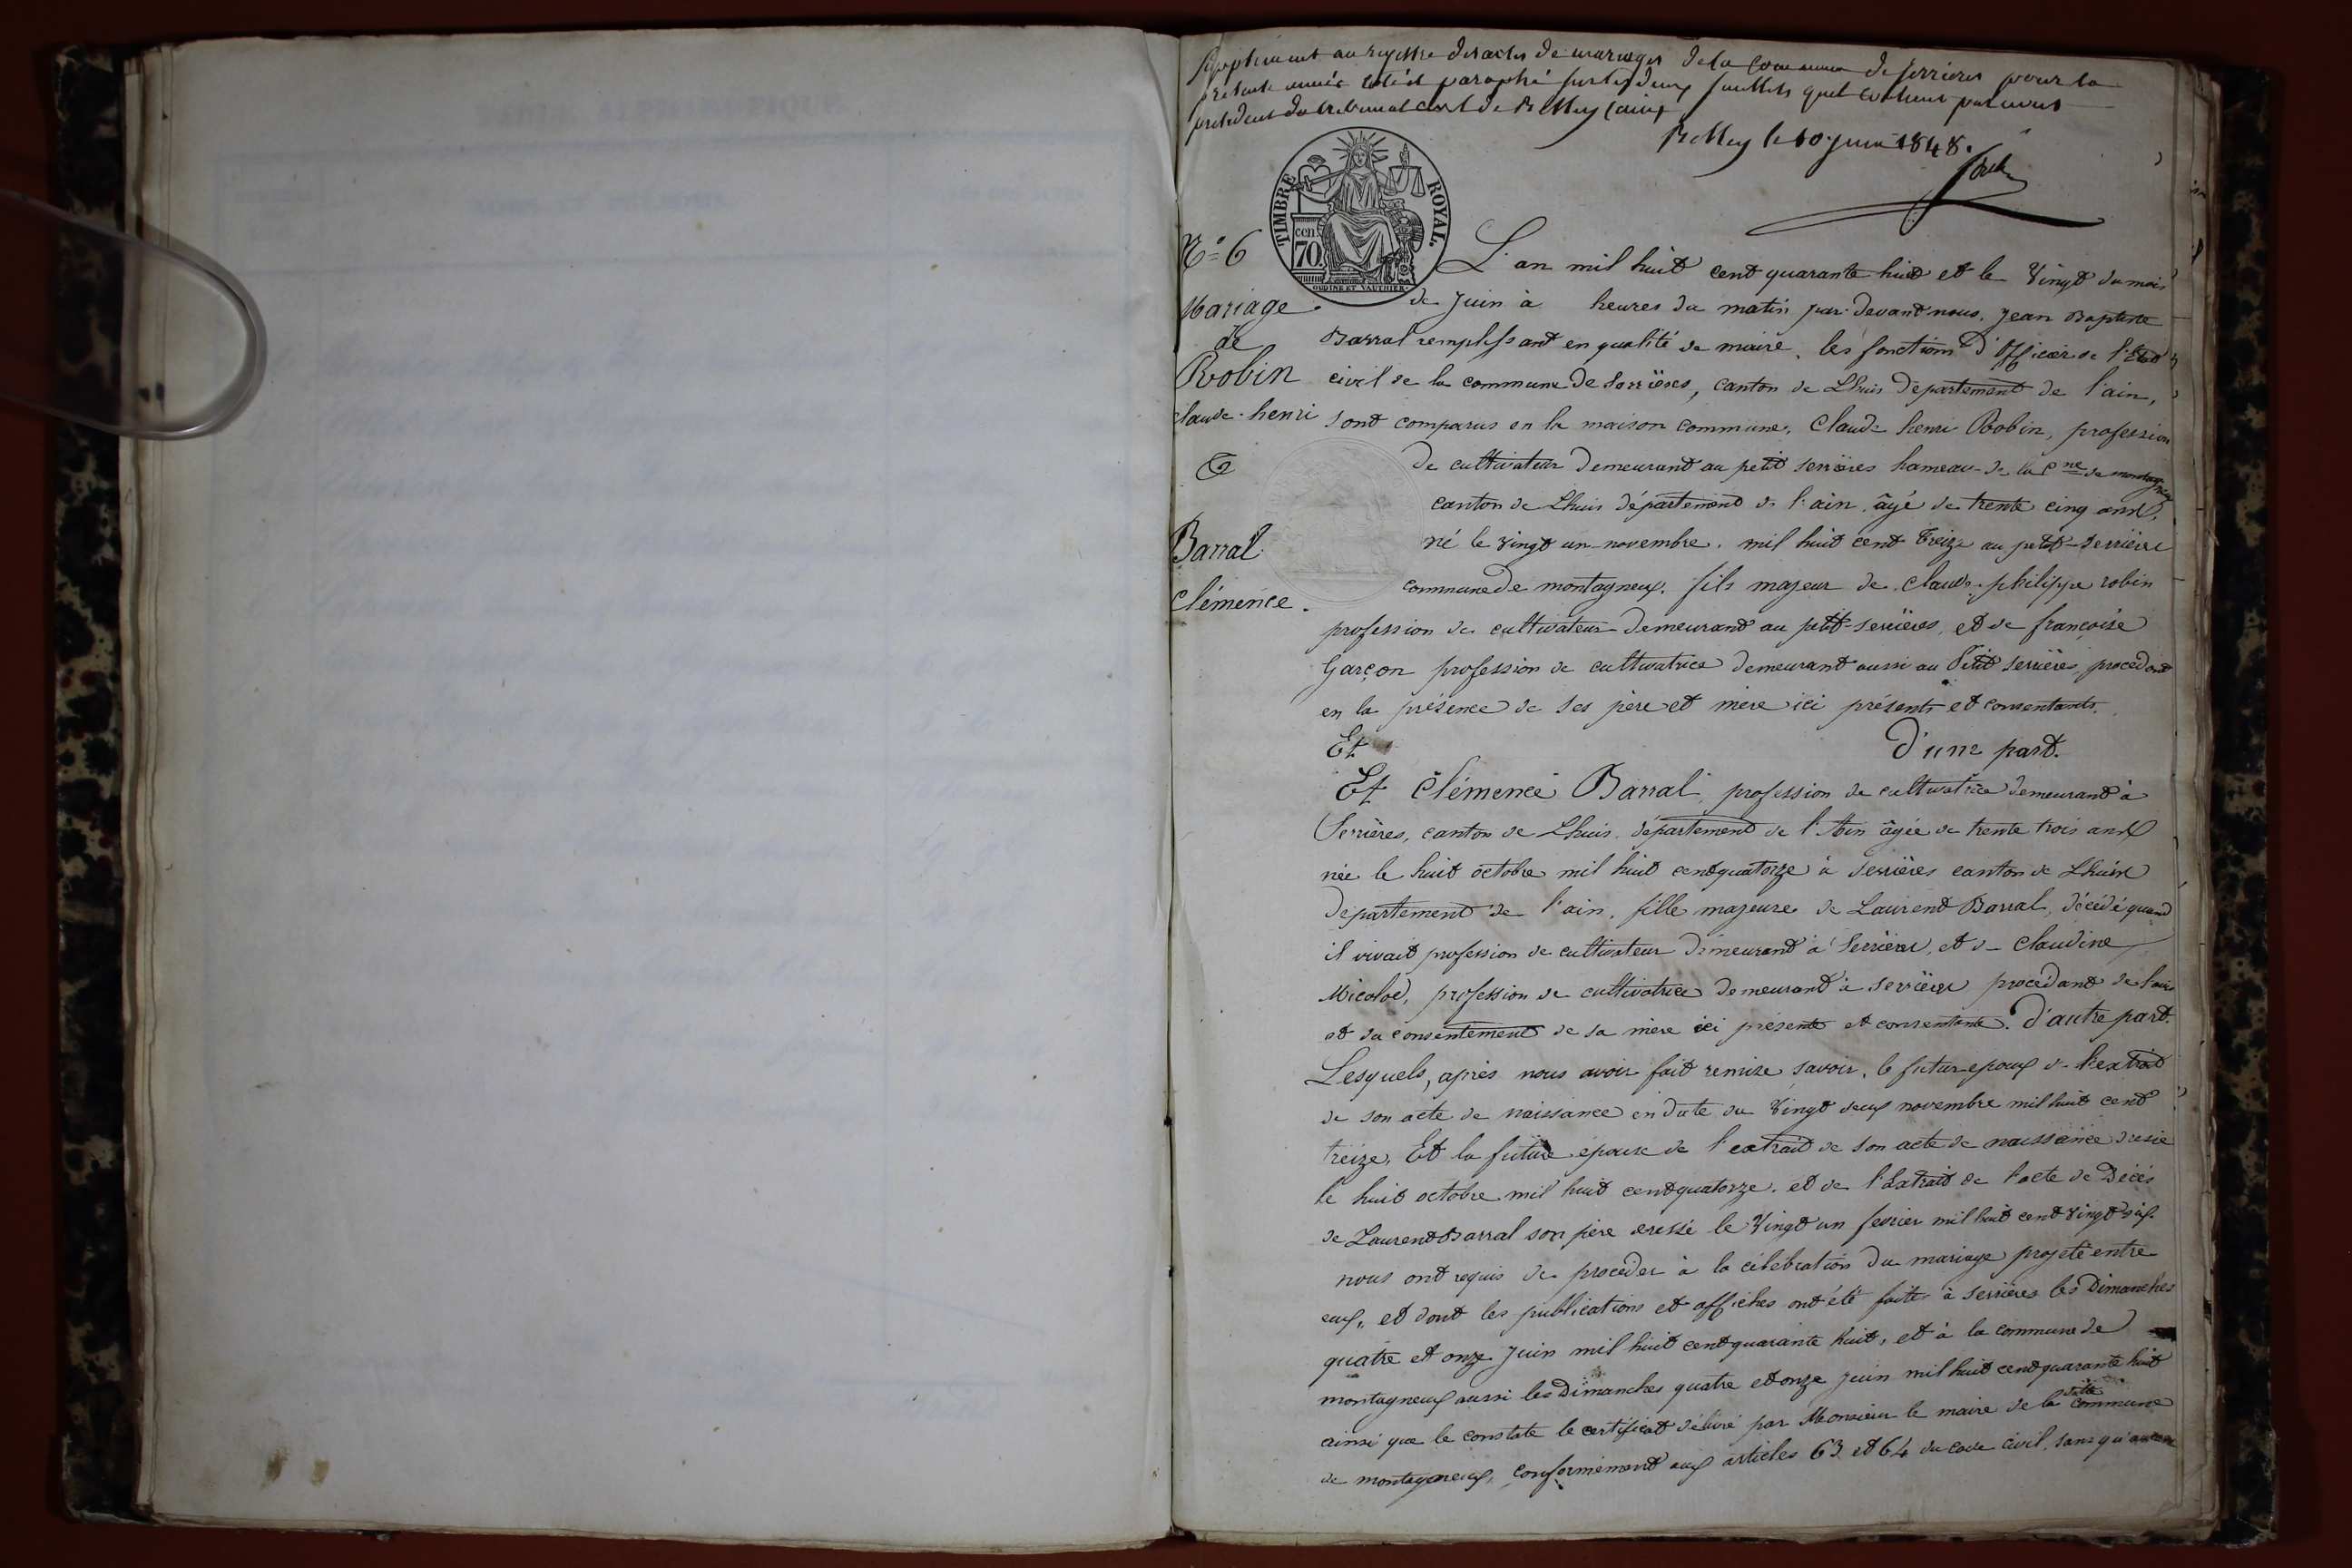 Supplément au registre des actes de mariages de la Commune de Serrières pour la
présente année coté et paraphé sur les deux feuillets qu'il contient par nous
président du tribunal civil de Belley (ain)
Belley le 10 juin 1848.
TIMBRE ROYAL
cen. 70.
N.º 6
Mariage
de
Robin
claude-henri
&
Barral
Clémence.
L'an mil huit cent quarante-huit et le Vingt du mois
de Juin à heures du matin par-devant nous, Jean Baptiste
Barral remplissant en qualité de maire, les fonctions d'Officier de l'état
civil de la commune de Serrières, canton de Lhuis département de l'ain,
sont comparus en la maison commune, Claude henri Robin, profession
de cultivateur demeurant au petit serrières hameau de la Cne de montagneux
canton de Lhuis département de l'ain, âgé de trente cinq ans,
né le vingt un novembre, mil huit cent treize au petit-serrières
commune de montagneux, fils majeur de claude-philippe robin
profession de cultivateur demeurant au petit-serrières, et de françoise
Garçon profession de cultivatrice demeurant aussi au Petit serrières, procédant
en la présence de ses père et mère ici présents et consentants.
Et d'une part.
Et Clémence Barral, profession de cultivatrice demeurant à
Serrières, canton de Lhuis, département de l'Ain âgée de trente trois ans
née le huit octobre mil huit cent quatorze à serrières canton de Lhuis
département de l'ain, fille majeure de Laurent Barral, décédé quand
il vivait profession de cultivateur demeurant à Serrières, et de Claudine
Micolod, profession de cultivatrice demeurant à serrières procédant de l'avis
et du consentement de sa mère ici présente et consentante. d'autre part.
Lesquels, après nous avoir fait remise savoir, le futur epoux de l'extrait
de son acte de naissance en date du Vingt deux novembre mil huit cent
treize, Et la future épouse de l'extrait de son acte de naissance dressé
le huit octobre mil huit cent quatorze, et de l'Extrait de l'acte de Décès
de Laurent Barral son père dressé le Vingt un fevrier mil huit cent vingt six
nous ont requis de procéder à la célébration du mariage projeté entre
eux, et dont les publications et affiches ont été faites à serrières les Dimanches
quatre et onze Juin mil huit cent quarante huit, et à la commune de
montagneux aussi les Dimanches quatre et onze juin mil huit cent quarante huit
ainsi que le constate le certificat délivré par Monsieur le maire de la dite commune
de montagneux, conformément aux articles 63 et 64 du code civil, sans qu'aucune